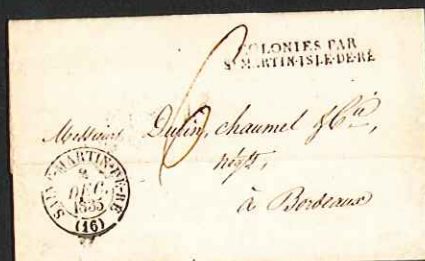 COLONIES PAR
St MARTIN-ISLE-DE-RÉ
6
Messieurs Dulin, Chaumel & Cie,
négts,
à Bordeaux
SAINT-MARTIN-DE-RÉ
2
DEC.
1835
(16)